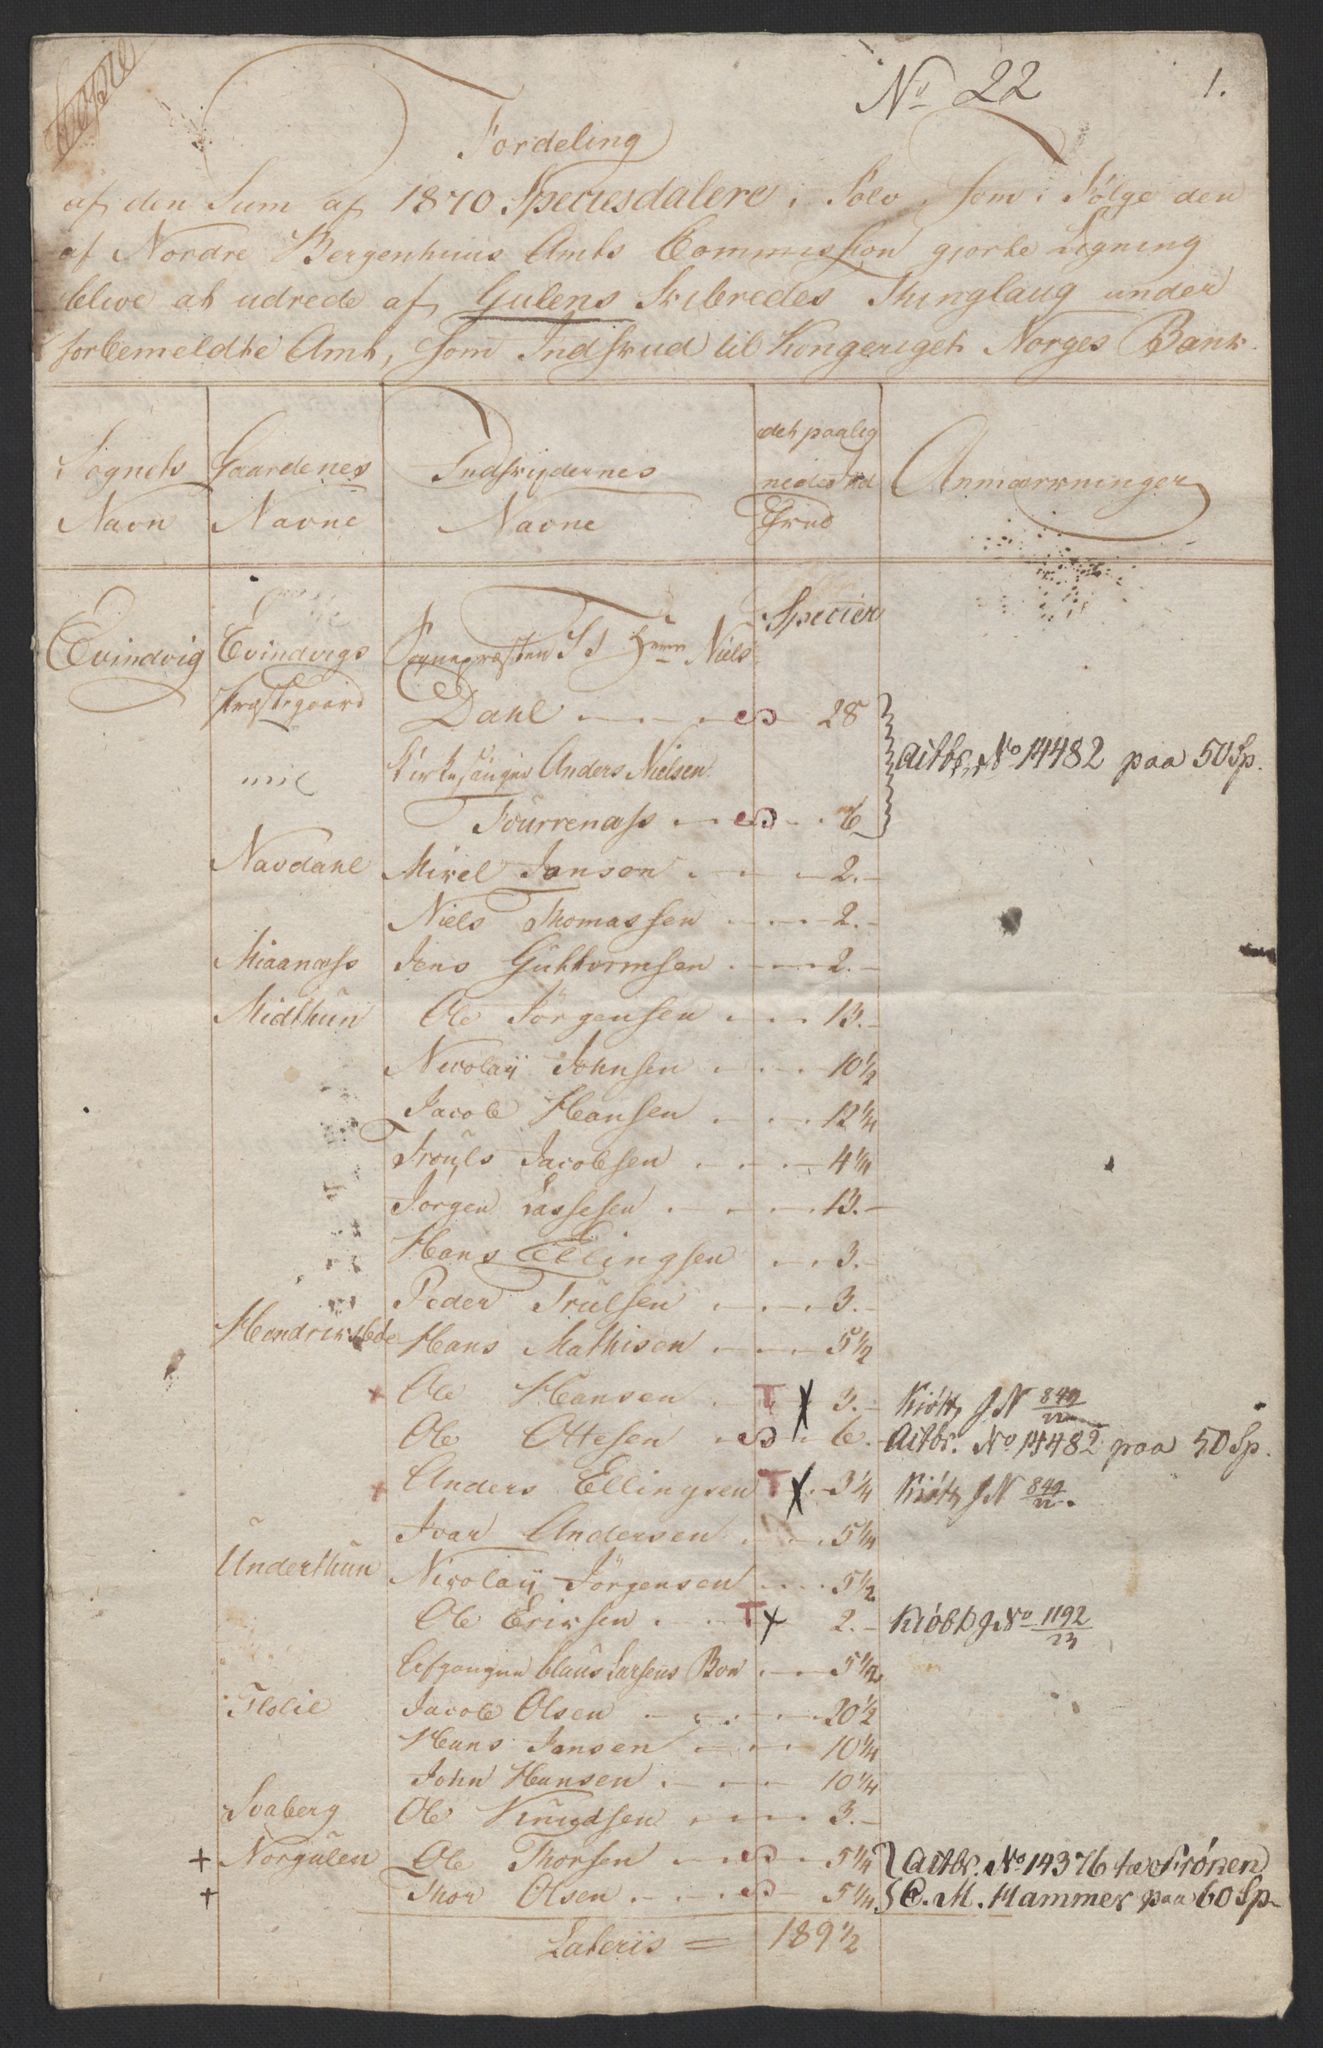 Copie
No 22
1.
Fordeling
af den Sum af 1870 Speciesdalere i Sølv, som i Følge den
af Nordre Bergenhuus Amts Commission gjorte Ligning
blive at udrede af Gulens Skibredes Thinglaug under
forbemeldte Amt, som Indskud til Kongeriget Norges Bank.
Sognets Navn
Gaardenes Navne
Indskydernes Navne
det paalig
nede Ind
skud
Anmærkninger
Specier
Evindvig Evindvigs Sognepræsten S T Herr Niels
Præstegaard Dahl 28
Actbr. No 14482 paa 50 Sp.
Kirkesanger Anders Nielsen
Fourrenæss 6
Navdahl Mikel Jansen 2.
Niels Thomassen 2.
Miaanæss Jens Guttormsen 2.
Midthun Ole Jörgensen 13.
Nicolaij Johnsen 10 1/2
Jacob Hansen 12 1/4
Trouls Jacobsen 4 1/4
Jörgen Lassesen 13.
Hans Ellingsen 3.
Peder Trulsen 3.
Hendriksbøe Hans Mathisen 5 1/2
+ Ole Hansen T X 3. Kiöbt, J N 849/22
Ole Ottesen 6. Actbr. No 14482 paa 50 Sp.
+ Anders Ellingsen T X 3 1/4 Kiöbt J N 849/22.
Ivar Andersen 5 1/4
Underthun Nicolaij Jörgensen 5 1/2
Ole Eriksen T X 2. Kiöbt J No 1192/23
Afgangne Claus Larsens Boe 5 1/2
Flolie Jacob Olsen 20 1/2
Hans Jansen 10 1/4
John Hansen 10 1/4
Svaberg Ole Knudsen 3.
+ Norgulen Ole Thorsen 5 1/4 Actbr. No 14376 to Frönen
+ Thor Olsen 5 1/4 C. M. Hammer paa 60 Sp.
Lateris = 189 1/2